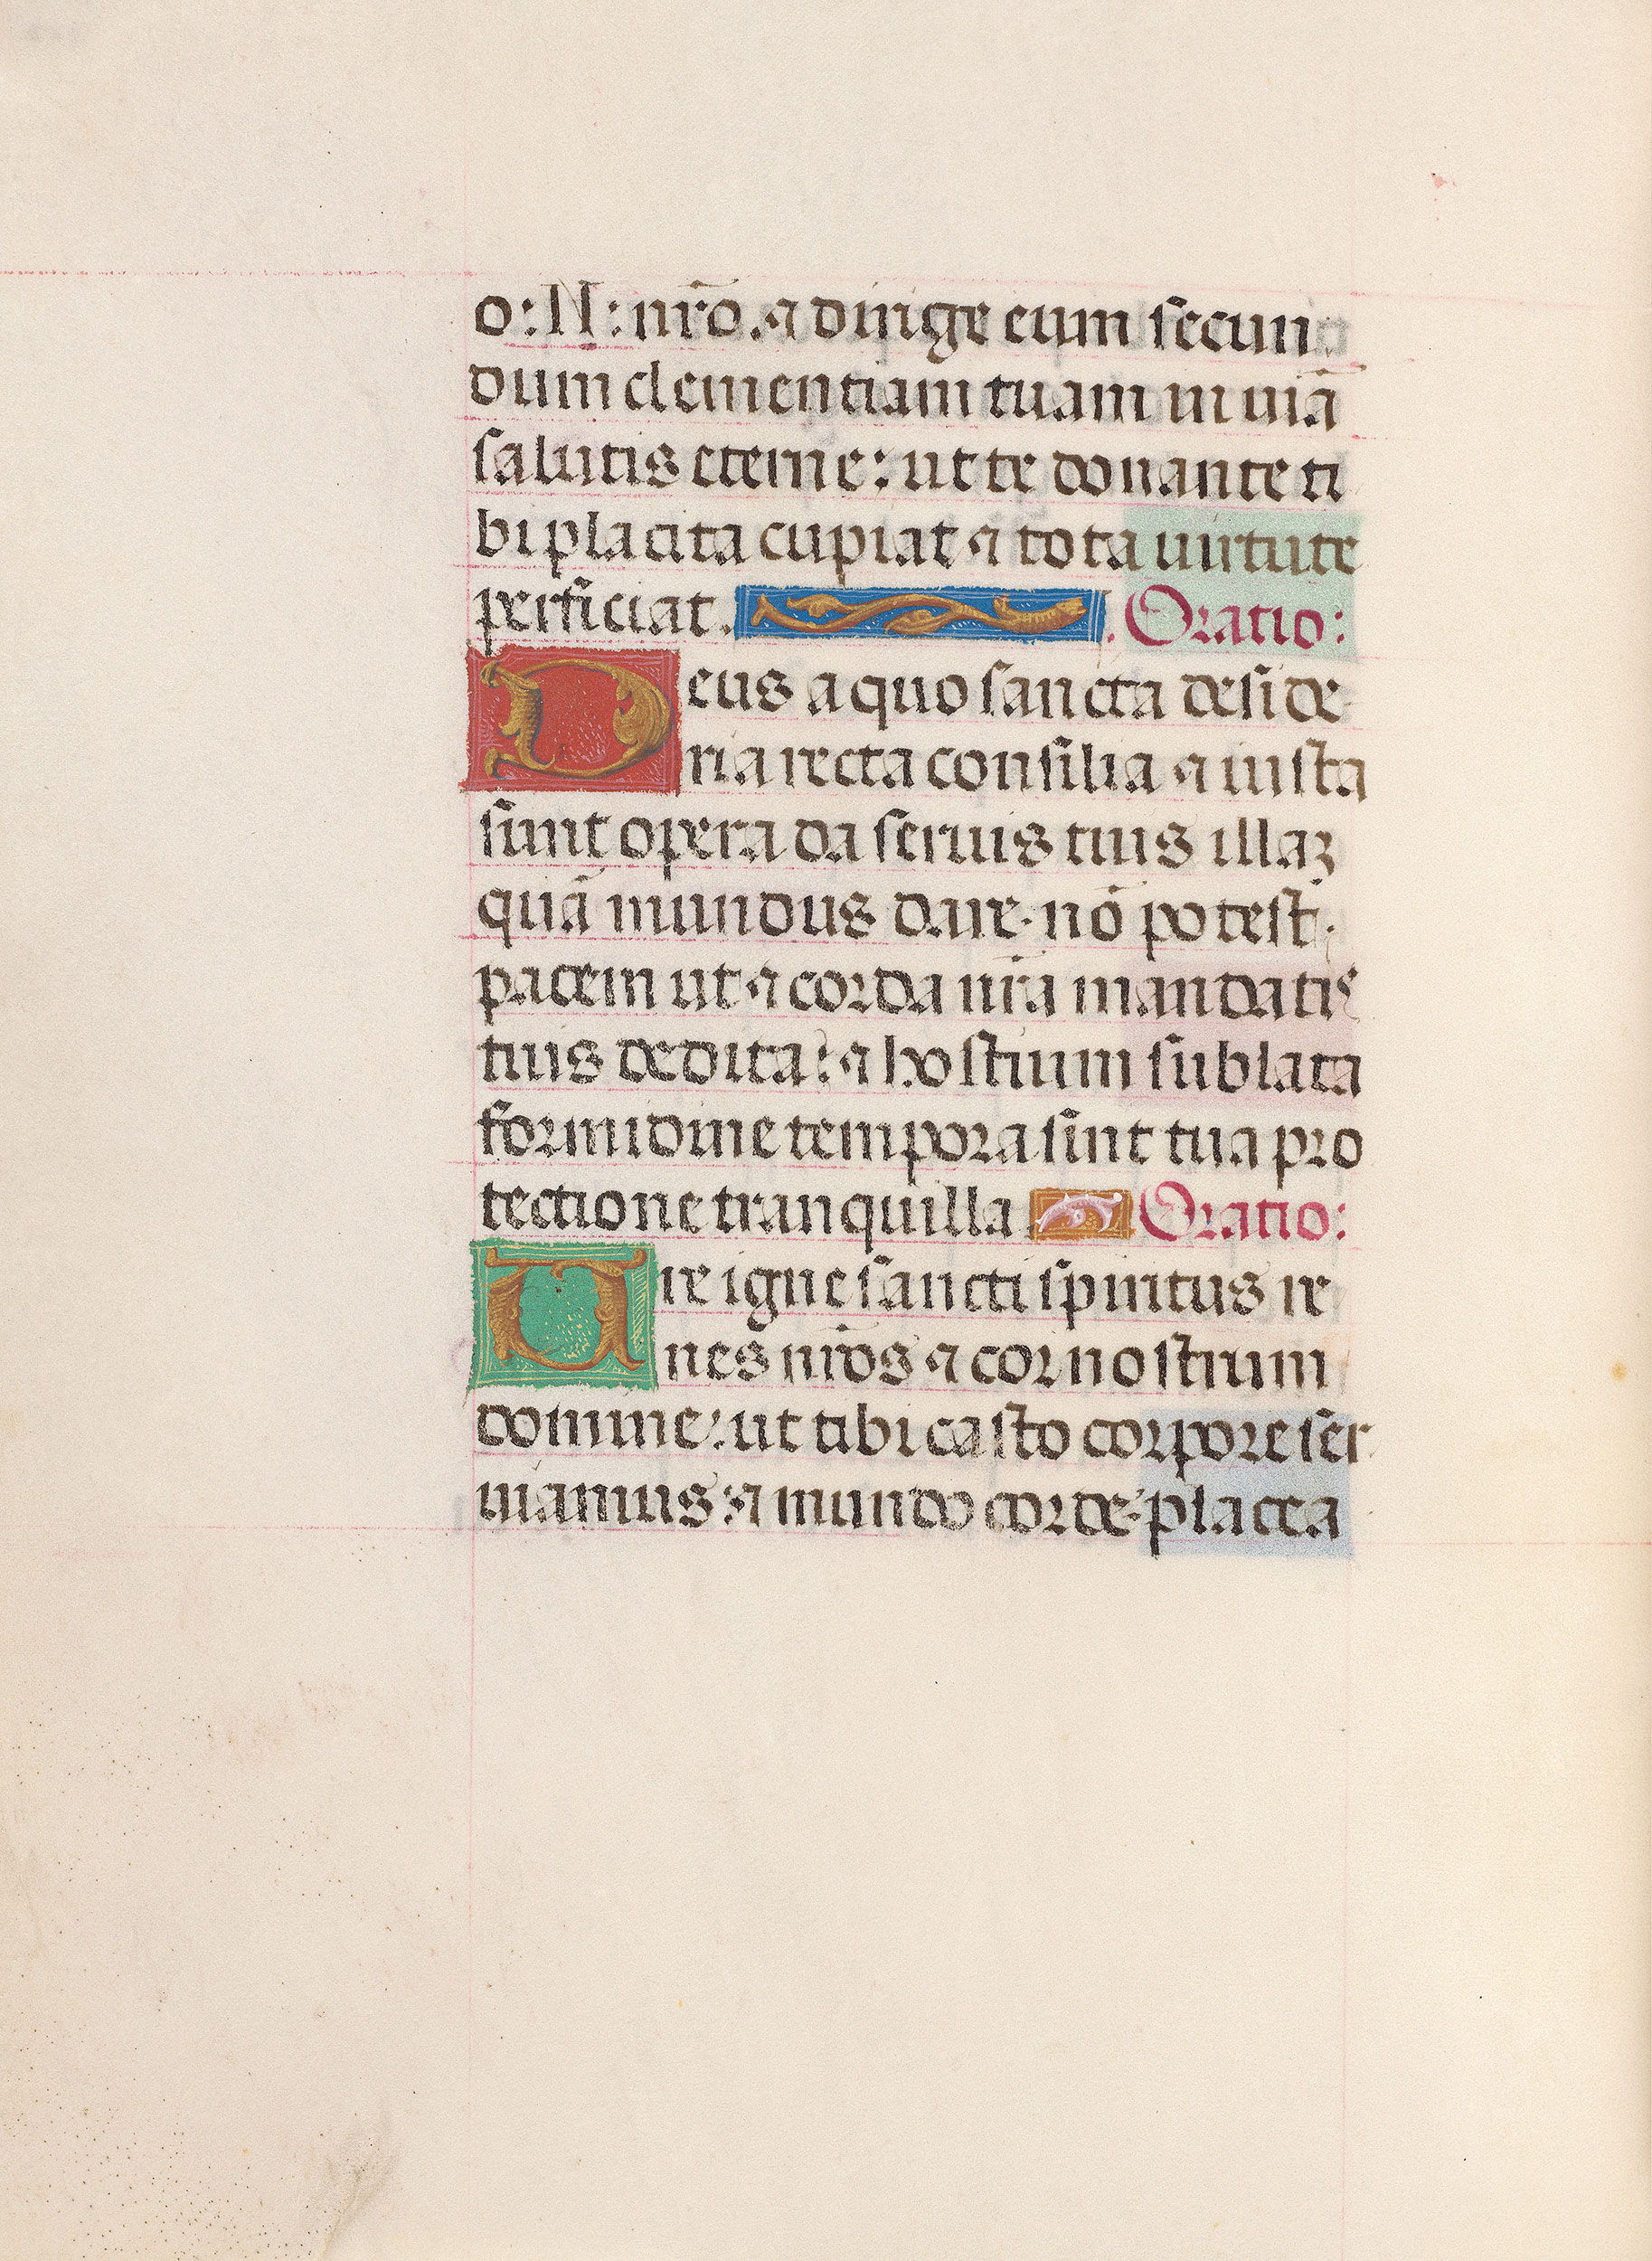 o: N: nr̄o. ⁊ dirige eum secun
dum clementiam tuam in uiā
salutis eterne: ut te donante ti
bi placita cupiat ⁊ tota uirtute
perficiat. Oratio:
Deus a quo sancta deside
ria recta consilia ⁊ iusta
sunt opera da seruis tuis illaꝫ
quā mundus dare nō potest
pacem ut ⁊ corda nr̄a mandatis
tuis dedita: ⁊ hostium sublata
formidine tempora sint tua pro
tectione tranquilla. Oratio:
Ure igne sancti spiritus re
nes nr̄os ⁊ cor nostrum
domine: ut tibi casto corpore ser
uiamus: ⁊ mundo corde placea